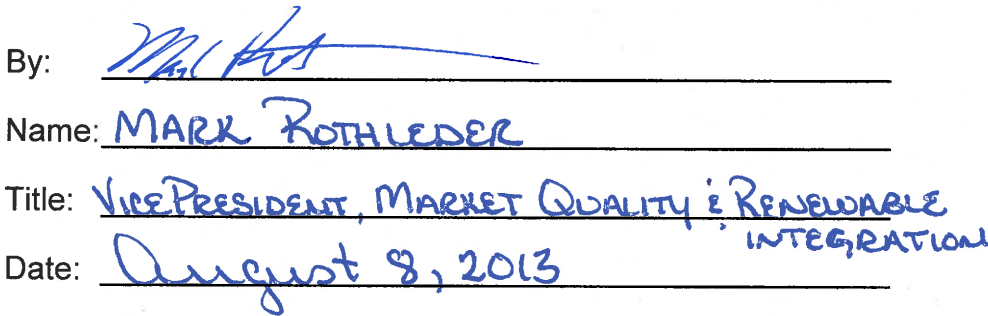 By: Mark Roth
Name: MARK ROTHLEDER
Title: VICE PRESIDENT, MARKET QUALITY & RENEWABLE
INTEGRATION
Date: August 8, 2013